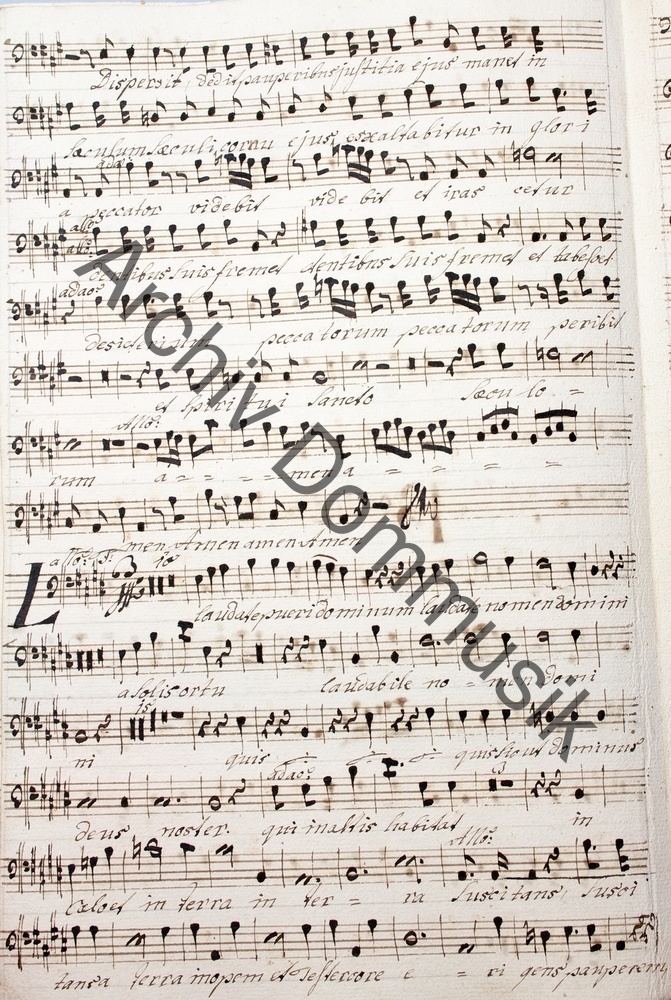 Dispersit, dedit pauperibus justitia ejus manet in
sæculum sæculi, cornu ejus exaltabitur in glori
a peccator videbit vide bit et iras cetur
all:o
dentibus suis fremet dentibus suis fremet et tabescet
adao:
desiderium peccatorum peccatorum peribit
et spiritui Sancto Sæcu lo =
All:o
rum a = = = = men a = = = = =
men Amen amen Amen
all:o
L laudate pueri dominum laudate nomen domini
a solis ortu laudabile no = men domi
15
ni quis quis sicut dominus
adao:
deus noster. qui in altis habitat in
All:o
Cœlo et in terra in ter = ra Suscitans, susci
tansa terra inopem et de stercore e = ri gens pauperem
Archiv Dommusik